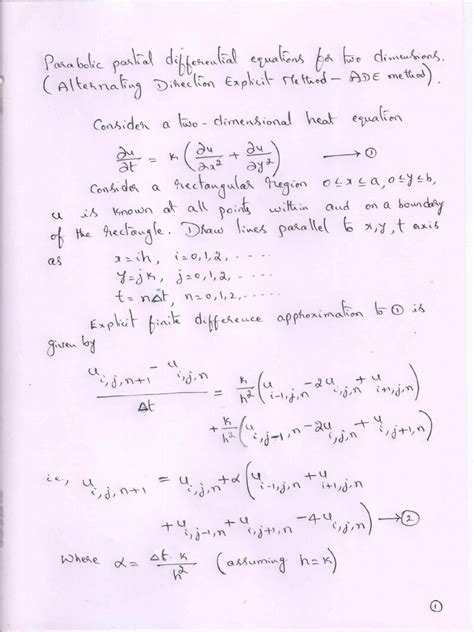 Parabolic partial differential equations for two dimensions.
(Alternating Direction Explicit Method – ADE method).
Consider a two-dimensional heat equation
∂u/∂t = k(∂u/∂x² + ∂u/∂y²) → ①
Consider a rectangular region 0≤x≤a, 0≤y≤b,
u is known at all points within and on a boundary
of the rectangle. Draw lines parallel to x,y,t axis
as x=ih, i=0,1,2,.....
y=jk, j=0,1,2,.....
t=nΔt, n=0,1,2,.....
Explicit finite difference approximation to ① is
given by
(u_{i,j,n+1} - u_{i,j,n})/Δt = k/h² (u_{i-1,j,n} - 2u_{i,j,n} + u_{i+1,j,n})
+ k/h² (u_{i,j-1,n} - 2u_{i,j,n} + u_{i,j+1,n})
ie, u_{i,j,n+1} = u_{i,j,n} + α(u_{i-1,j,n} + u_{i+1,j,n}
+ u_{i,j-1,n} + u_{i,j+1,n} - 4u_{i,j,n}) → ②
where α = Δt.k/h² (assuming h=k)
①